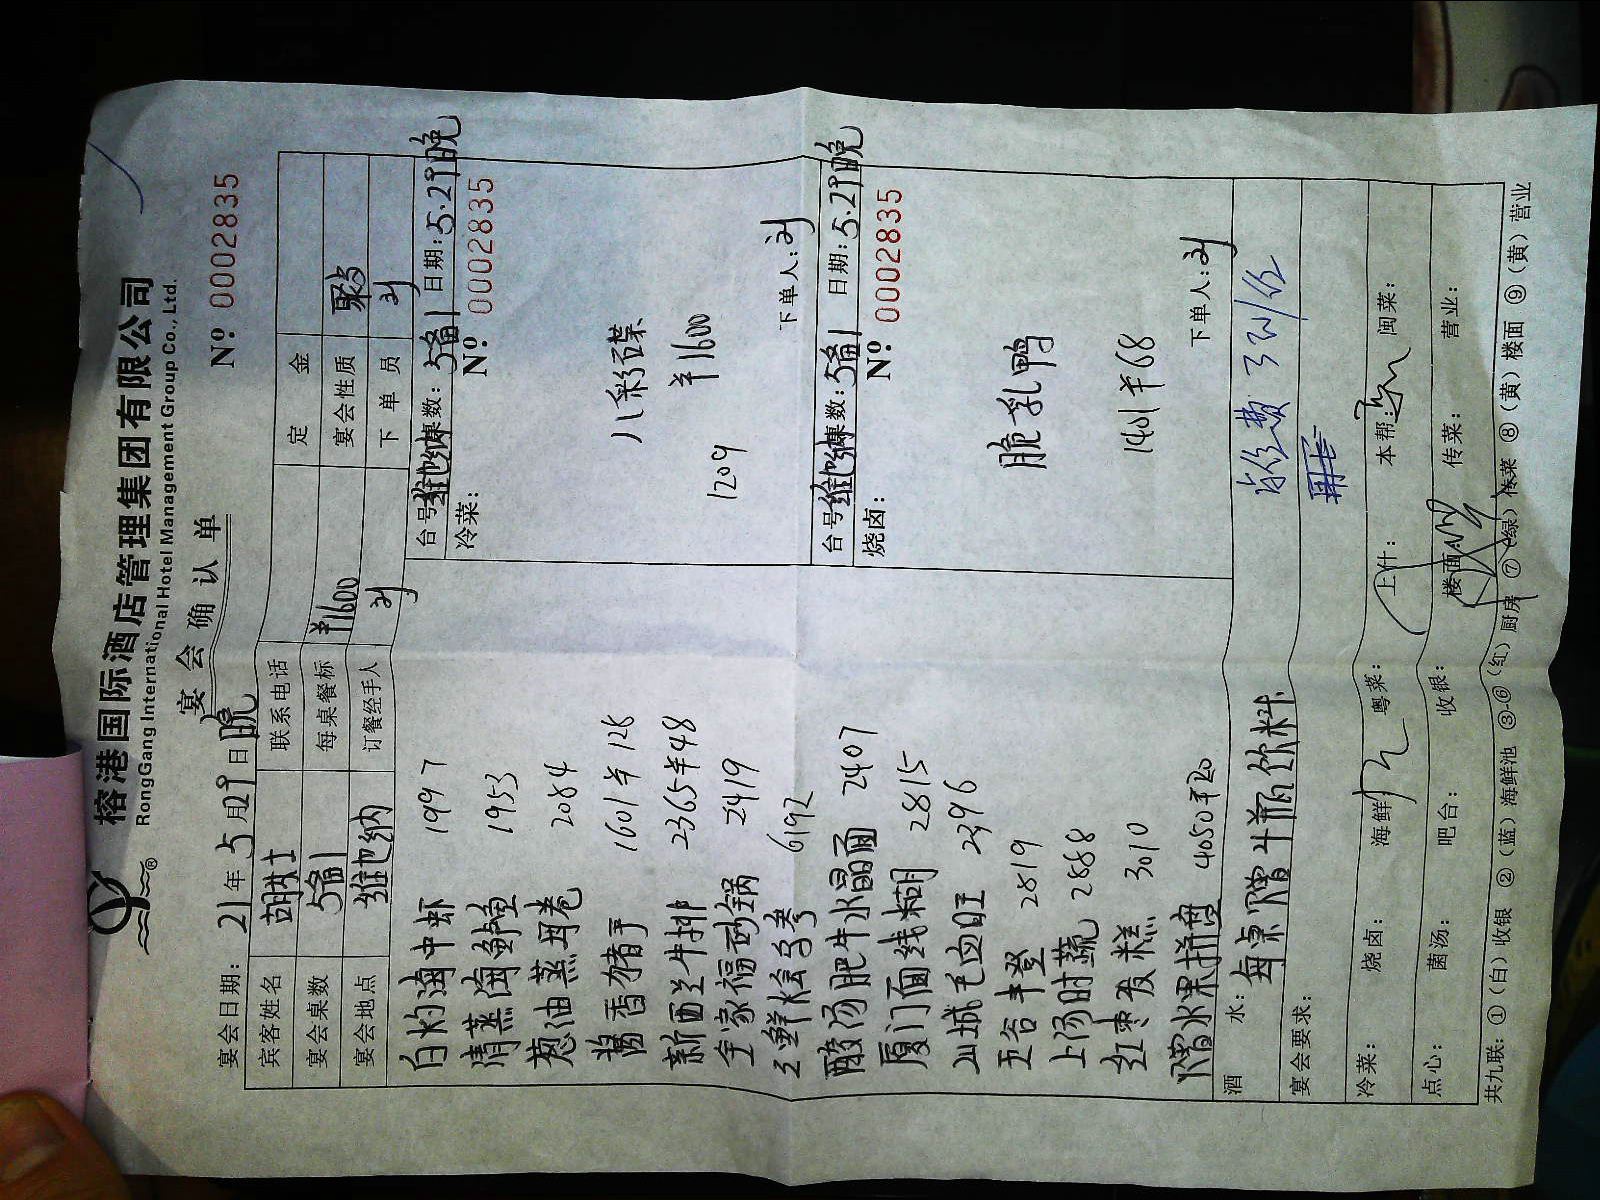 榕港国际酒店管理集团有限公司
RongGang International Hotel Management Group Co., Ltd.
宴会确认单
№ 0002835
宴会日期：21年5月29日晚
宾客姓名 胡女士 联系电话 定金
宴会桌数 5备1 每桌餐标 ¥1600 宴会性质 聚会
宴会地点 维也纳 订餐经手人 刘 下单员 刘
白灼海中虾 1997
清蒸海鲈鱼 1953
葱油蒸丹卷 2084
酱香猪手 1601 ¥128
新西兰牛排 2365 ¥48
全家福砂锅 2419
三鲜烩鱼孝 6192
酸汤肥牛水晶面 2407
厦门面线糊 2815
山城毛血旺 2396
五谷丰登 2819
上汤时蔬 2888
红枣发糕 3010
赠水果拼盘 4050 ¥20
台号：维也纳 桌数：5备1 日期：5.29晚
冷菜： № 0002835
八彩碟
1209 ¥1600
下单人：刘
台号：维也纳 桌数：5备1 日期：5.29晚
烧卤： № 0002835
脆乳鸭
1401 ¥68
下单人：刘
酒水：每桌赠4瓶饮料
宴会要求：
冷菜： 烧卤： 海鲜： 粤菜： 上什： 本帮： 闽菜：
点心： 菌汤： 吧台： 收银： 楼面： 传菜： 营业：
共九联：①（白）收银 ②（蓝）海鲜池 ③-⑥（红）厨房 ⑦（绿）传菜 ⑧（黄）楼面 ⑨（黄）营业